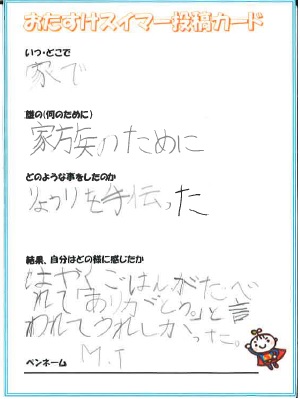 おたすけスイマー投稿カード
いつ・どこで
家で
誰の(何のために)
家族のために
どのような事をしたのか
りょうりを手伝った
結果、自分はどの様に感じたか
はやくごはんがたべ
れて「ありがとう。」と言
われてうれしかった。
ペンネーム M.T